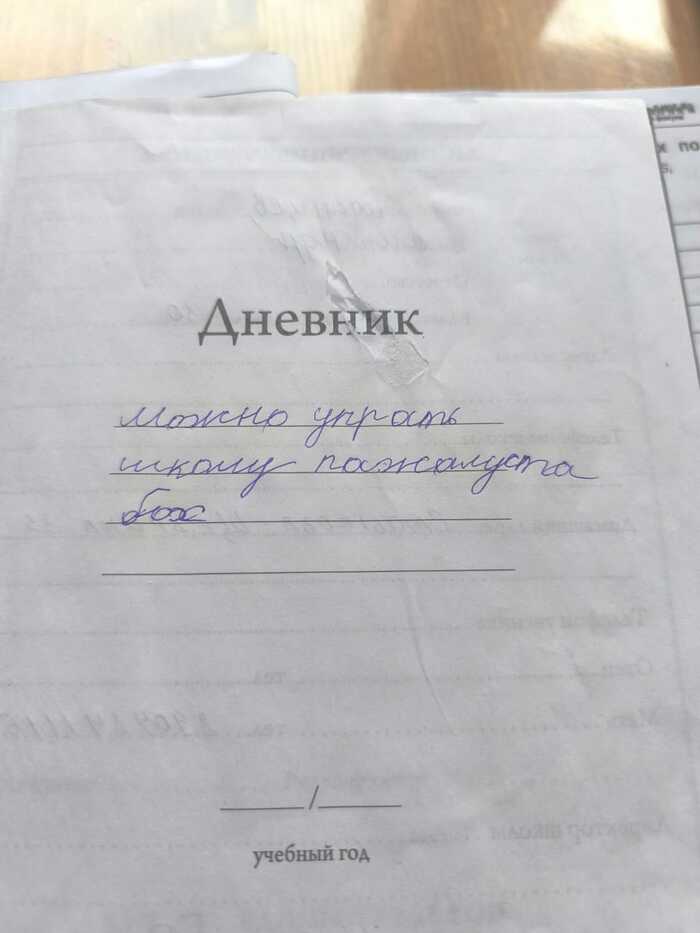 Дневник
можно упрать
школу пажалуста
бох
/
учебный год
х по